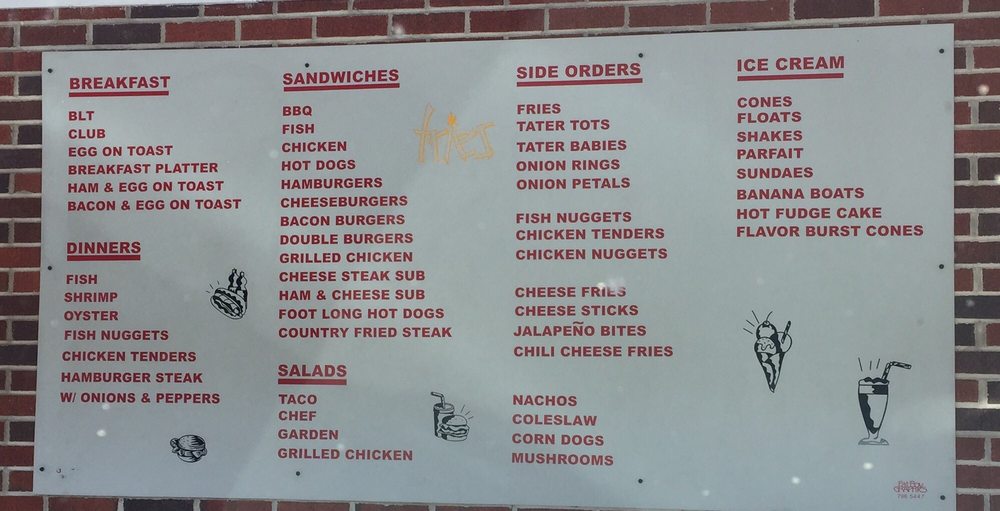 BREAKFAST
BLT
CLUB
EGG ON TOAST
BREAKFAST PLATTER
HAM & EGG ON TOAST
BACON & EGG ON TOAST
DINNERS
FISH
SHRIMP
OYSTER
FISH NUGGETS
CHICKEN TENDERS
HAMBURGER STEAK
W/ ONIONS & PEPPERS
SANDWICHES
BBQ
FISH
CHICKEN
HOT DOGS
HAMBURGERS
CHEESEBURGERS
BACON BURGERS
DOUBLE BURGERS
GRILLED CHICKEN
CHEESE STEAK SUB
HAM & CHEESE SUB
FOOT LONG HOT DOGS
COUNTRY FRIED STEAK
SALADS
TACO
CHEF
GARDEN
GRILLED CHICKEN
SIDE ORDERS
FRIES
TATER TOTS
TATER BABIES
ONION RINGS
ONION PETALS
FISH NUGGETS
CHICKEN TENDERS
CHICKEN NUGGETS
CHEESE FRIES
CHEESE STICKS
JALAPEÑO BITES
CHILI CHEESE FRIES
NACHOS
COLESLAW
CORN DOGS
MUSHROOMS
ICE CREAM
CONES
FLOATS
SHAKES
PARFAIT
SUNDAES
BANANA BOATS
HOT FUDGE CAKE
FLAVOR BURST CONES
796 5447